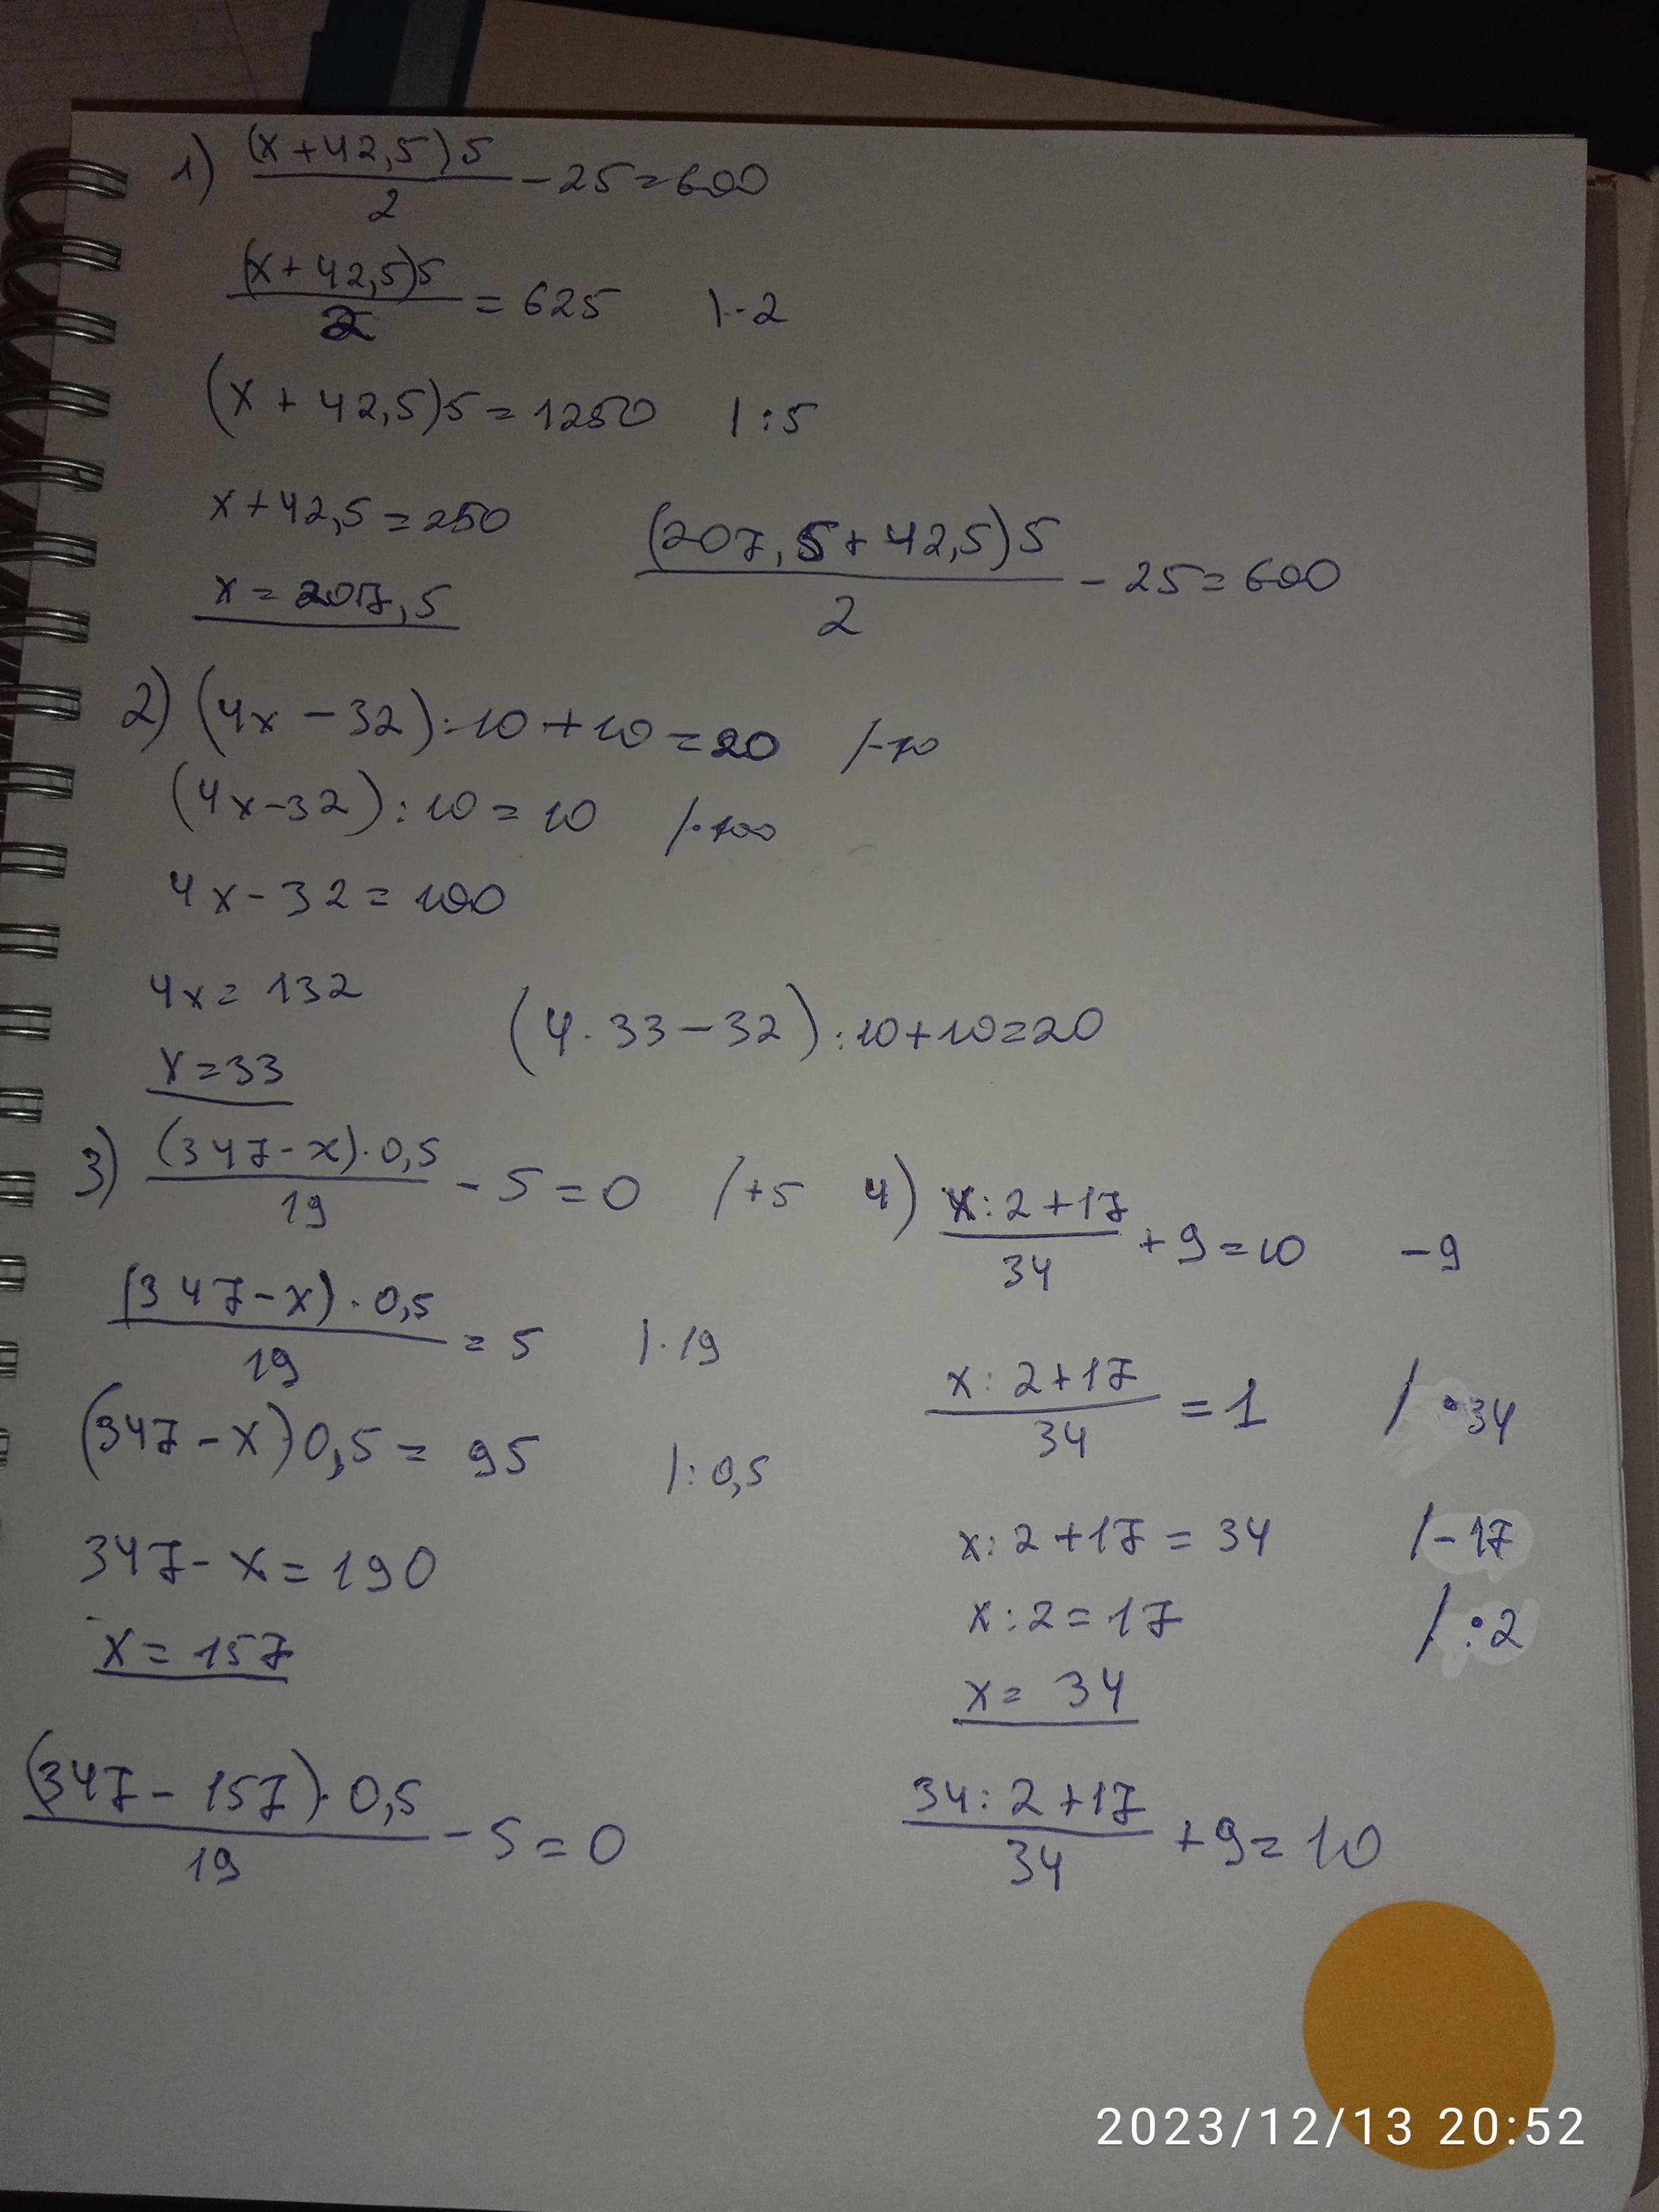 1) (x+42,5)5 / 2 - 25 = 600
(x+42,5)5 / 2 = 625 |·2
(x+42,5)5 = 1250 |:5
x+42,5 = 250
x = 207,5
(207,5+42,5)5 / 2 - 25 = 600
2) (4x-32):10+10 = 20 /-10
(4x-32):10 = 10 /·100
4x-32 = 100
4x = 132
x = 33
(4·33-32):10+10 = 20
3) (347-x)·0,5 / 19 - 5 = 0 /+5
(347-x)·0,5 / 19 = 5 |·19
(347-x)0,5 = 95 |:0,5
347-x = 190
x = 157
(347-157)·0,5 / 19 - 5 = 0
4) x:2+17 / 34 + 9 = 10 -9
x:2+17 / 34 = 1 /·34
x:2+17 = 34 /-17
x:2 = 17 /:2
x = 34
34:2+17 / 34 + 9 = 10
2023/12/13 20:52